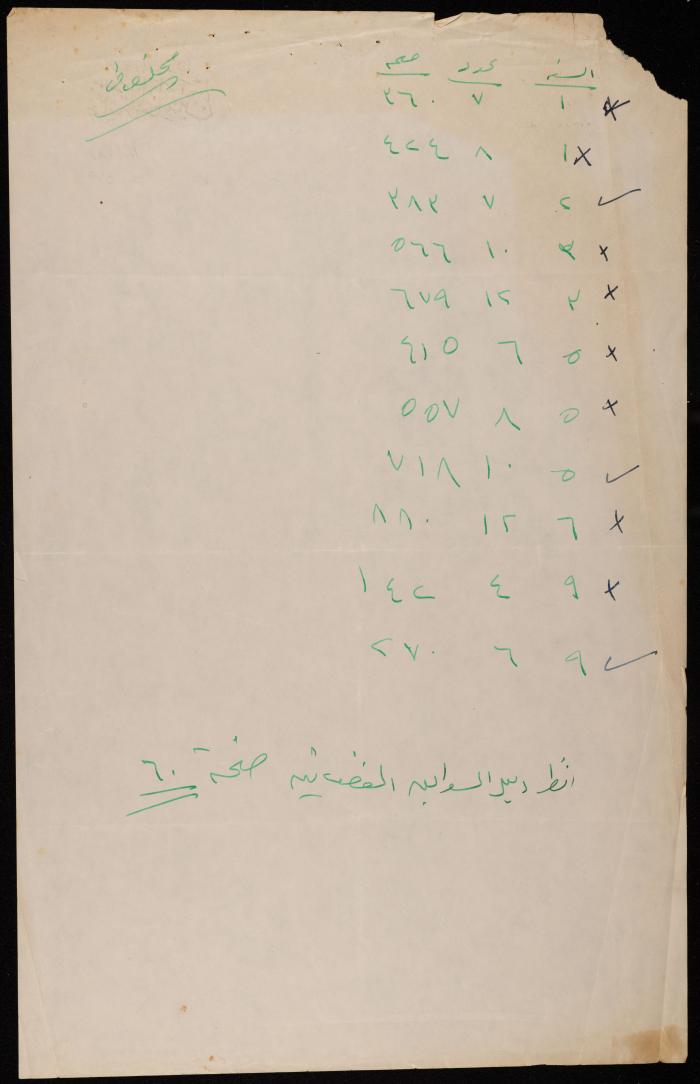 السنة عدد صفحة
١ ٧ ٣٦٠
١ ٨ ٤٢٤
٢ ٧ ٣٨٣
٣ ١٠ ٥٦٦
٣ ١٢ ٦٧٩
٥ ٦ ٤١٥
٥ ٨ ٥٥٧
٥ ١٠ ٧١٨
٦ ١٢ ٨٨٠
٩ ٤ ١٤٢
٩ ٦ ٢٧٠
انظر دليل السوابق القضائية صفحة ٦٠